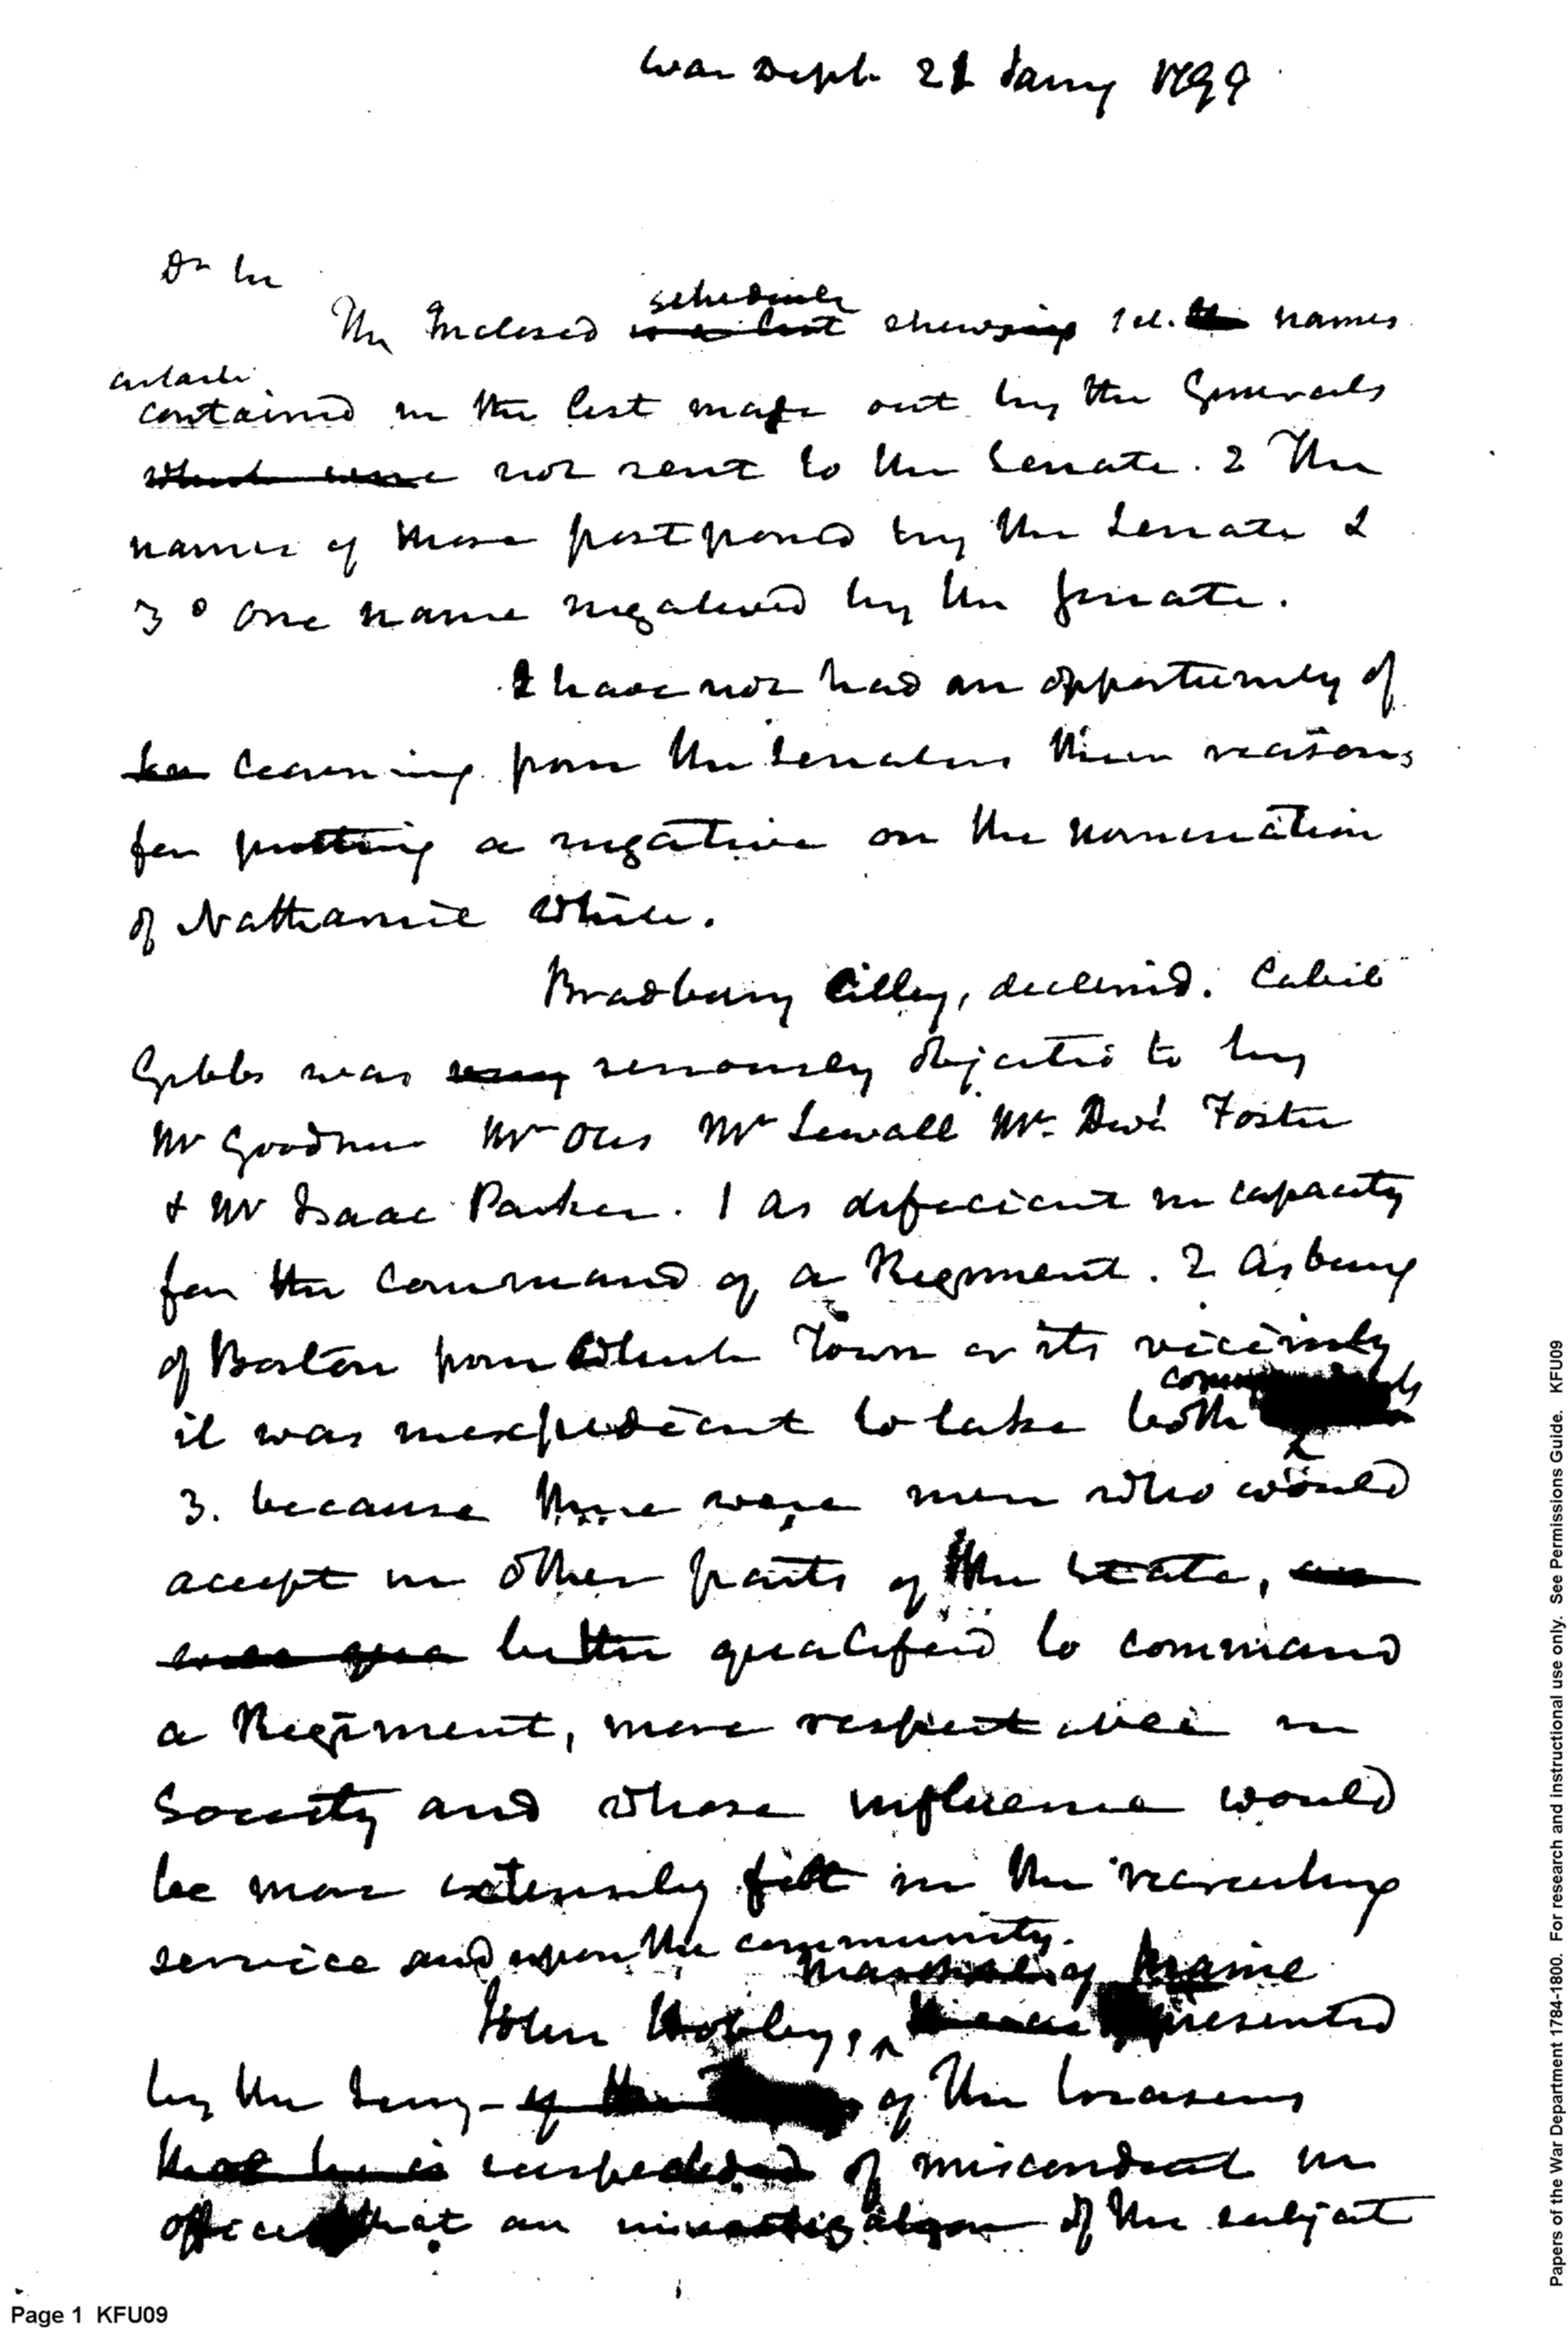 War Dept. 21 Jany 1799
Dr Sir
schedule
The Inclosed is a list shewsing 1st. the names
contained in the list made out by the Generals
which were not sent to the Senate. 2 The
names of those postponed by the Senate &
3° One name negatived by the Senate.
I have not had an opportunity of
learning from the Senators their reasons
for putting a negative on the nomination
of Nathaniel White.
Bradbury Cilley, declined. Caleb
Gibbs was very seriously objected to by
Mr Goodhue Mr Otis Mr Sewall Mr. Dwt Foster
& Mr Isaac Parker. 1 As deficient in capacity
for the command of a Regiment. 2 As being
of Boston from which Town or its vicinity
it was inexpedient to take both
3. because there were men who would
accept in other parts of the State,
better qualified to command
a Regiment, more respectable in
Society and whose influence would
be more extensively felt in the recruiting
service and upon the community.
Marshal of Maine
John Hobby, presented
by the Secy- of the of the Treasury
that he is suspected of misconduct in
office that an investigation of the subject
Page 1 KFU09
Papers of the War Department 1784-1800. For research and instructional use only. See Permissions Guide. KFU09